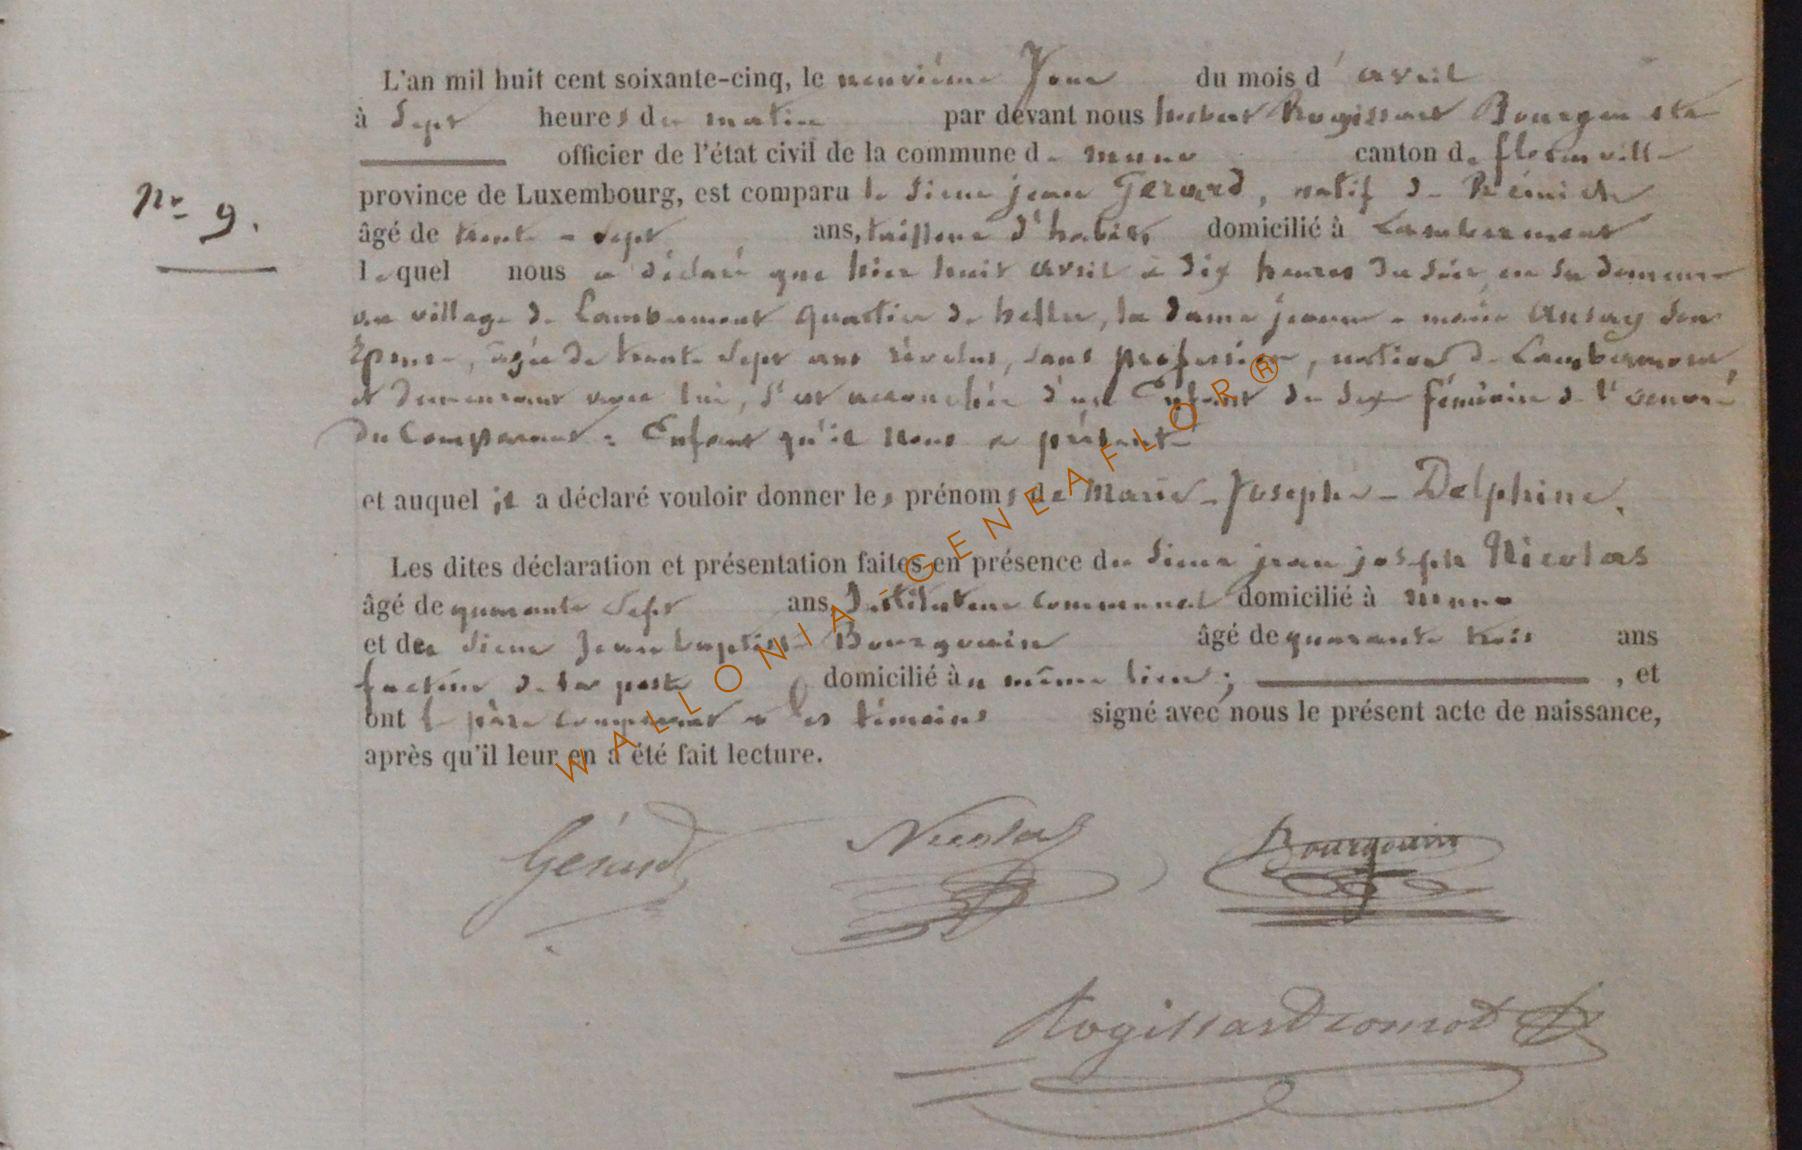 L'an mil huit cent soixante-cinq, le neuvième Jour du mois d'avril
à Sept heures du matin par devant nous hubert Rogissart Bourgmestre
officier de l'état civil de la commune de muno canton de florenville
province de Luxembourg, est comparu le Sieur jean Gerard, natif de
Nr 9.
âgé de trente-sept ans, tailleur d'habits domicilié à Lambermont
lequel nous a déclaré que hier huit avril à dix heures du soir, en sa demeure
au village de Lambermont quartier de, la dame jeanne-marie Ansay son
Epouse, agée de trente sept ans révolus, sans profession, native de Lambermont,
et demeurant avec lui, s'est accouchée d'un Enfant du sexe féminin de l'oeuvre
du Comparant : Enfant qu'il nous a présenté
et auquel il a déclaré vouloir donner les prénoms de Marie-Josephe-Delphine.
Les dites déclaration et présentation faites en présence du Sieur jean joseph Nicolas
âgé de quarante Sept ans, Instituteur communal domicilié à muno
et du Sieur Jean baptiste Bourgouin âgé de quarante trois ans
facteur de la poste domicilié au même lieu; , et
ont le père comparant et les témoins signé avec nous le présent acte de naissance,
après qu'il leur en a été fait lecture.
WALLONIA-GENEAFLOR®
Gérard Nicolas Bourgouin
Rogissart